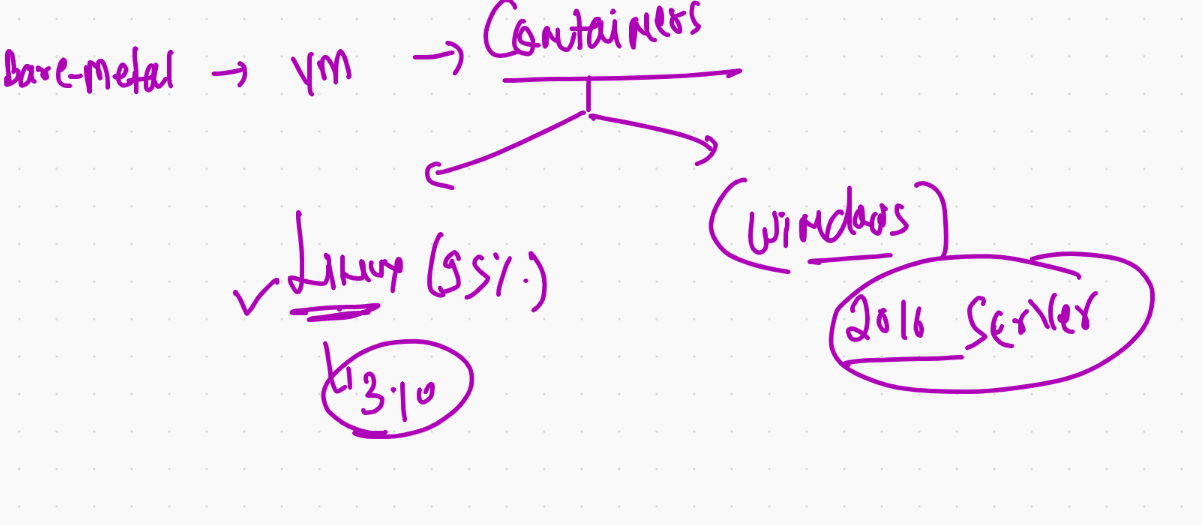 Bare-Metal → VM → Containers
Linux (95%)
(Windows)
3.10
2016 Server